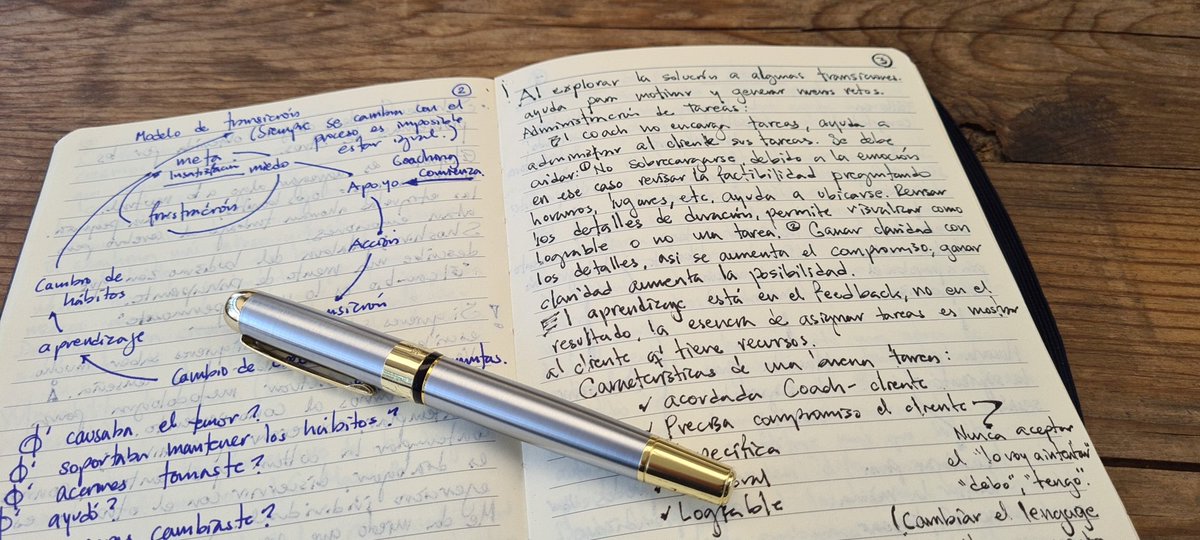 2
Modelo de transición
(Siempre se cambia con el
proceso es imposible
estar igual.)
meta
Insatisfacción miedo
frustración
Coaching
comienza
Apoyo
Acción
nsición
Cambio de
hábitos
aprendizaje
Cambio de
untas.
causaba el temor?
soportaba mantener los hábitos?
acciones tomaste?
ayudó?
cambiaste?
3
Al explorar la solución a algunas transiciones.
ayuda para motivar y generar nuevos retos.
Administración de tareas:
El coach no encarga tareas, ayuda a
administrar al cliente sus tareas. Se debe
cuidar: ① No sobrecargarse, debido a la emoción
en ese caso revisar la factibilidad preguntando
horarios, lugares, etc. ayuda a ubicarse. Revisar
los detalles de duración, permite visualizar como
lograble o no una tarea. ② Ganar claridad con
los detalles, asi se aumenta el compromiso, ganar
claridad aumenta la posibilidad.
El aprendizaje está en el feedback, no en el
resultado, la esencia de asignar tareas es mostrar
al cliente q' tiene recursos.
Características de una buena tarea:
✓ acordada Coach-cliente
✓ Precisa compromiso el cliente
pecífica
ral
✓ Lograble
Nunca aceptar
el "lo voy a intentar"
"debo", "tengo".
(Cambiar el lengage